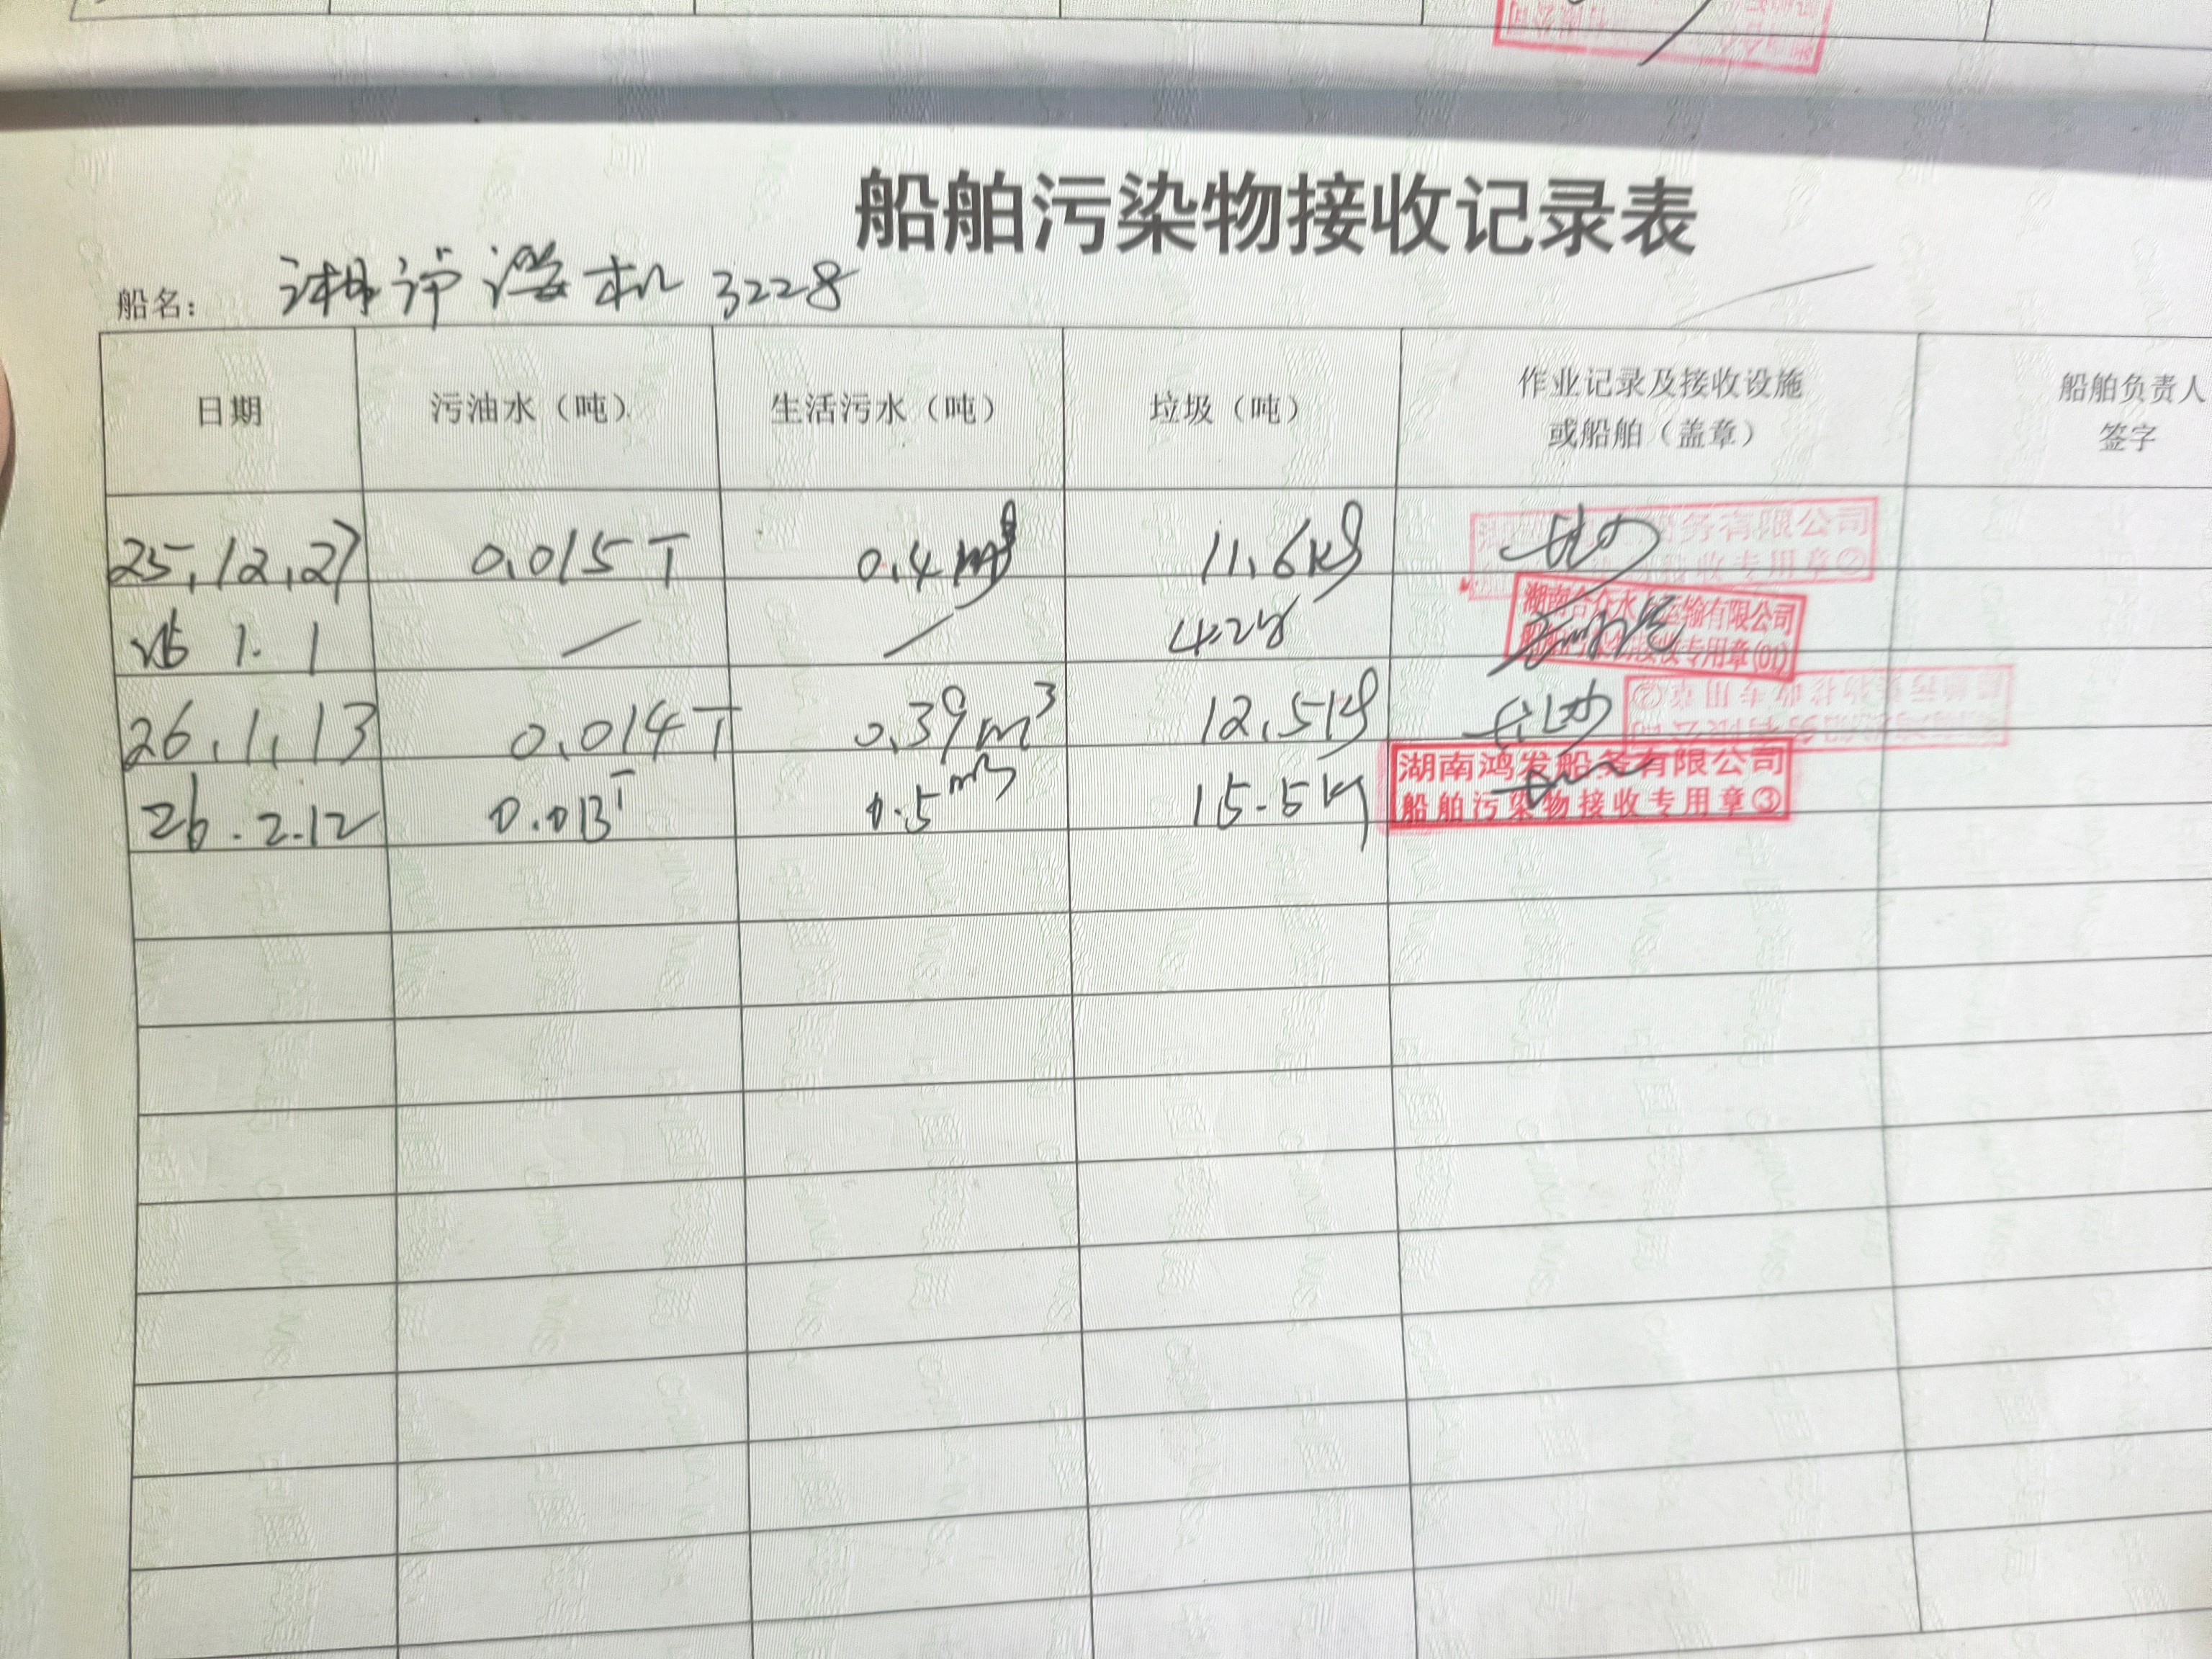 船舶污染物接收记录表
船名： 湘 港机 3228
日期 污油水（吨） 生活污水（吨） 垃圾（吨） 作业记录及接收设施或船舶（盖章） 船舶负责人签字
25,12,27 0.015T 0.4m³ 11.6kg 务有限公司 接收专用章②
26 1. 1 / / 湖南合众水 运输有限公司 接收专用章(01)
26,1,13 0.014T 0.39m³ 12.5kg 长沙
26.2.12 0.013T 0.5m³ 15.5kg
湖南鸿发船务有限公司
船舶污染物接收专用章③